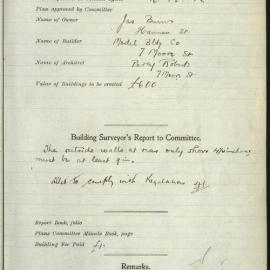 Plan approved by Committee
Name of Owner Jas Burns
Hannan St
Name of Builder Model Bldg Co
7 Moore St
Name of Architect Percy Roberts
7 Moore St
Value of Buildings to be erected £600
Building Surveyor's Report to Committee.
The outside walls at rear only shows
must be at least 9in.
to comply with Regulations
Report Book, folio
Plans Committee Minute Book, page
Building Fee Paid
Remarks.